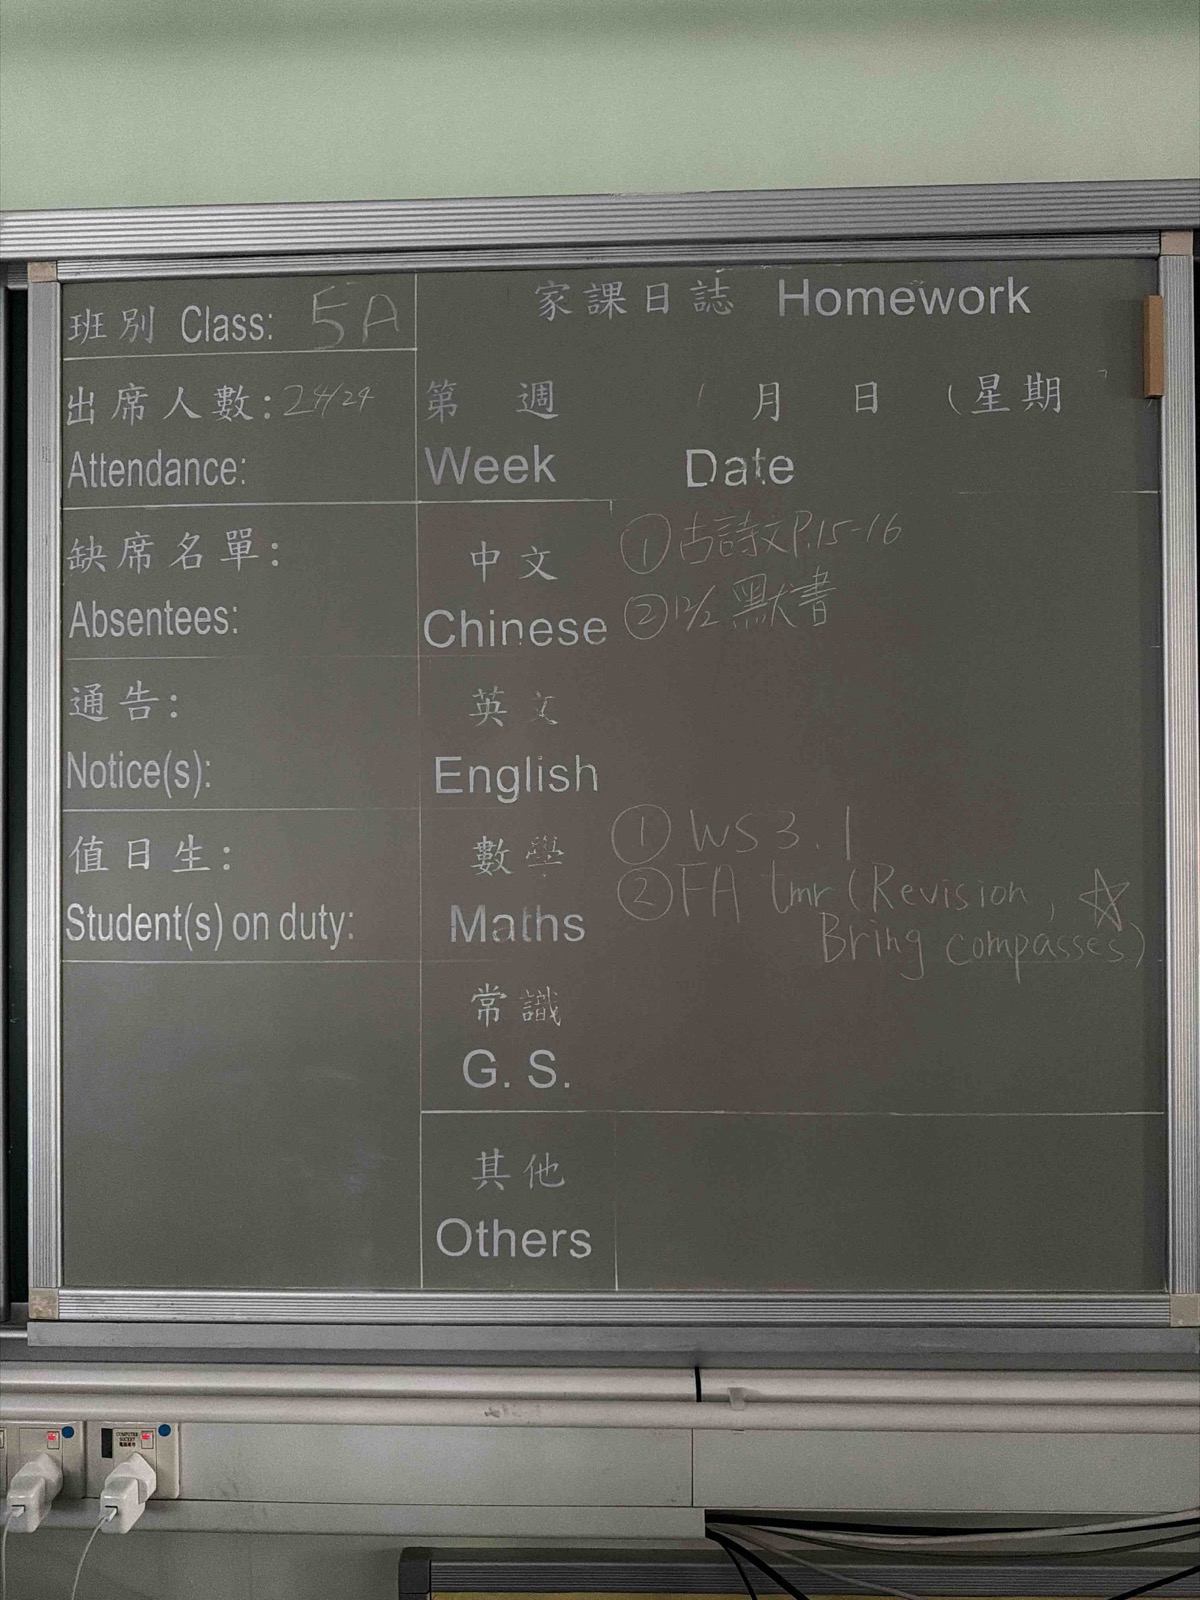 班別 Class: 5A
出席人數: 24/24
Attendance:
缺席名單:
Absentees:
通告:
Notice(s):
值日生:
Student(s) on duty:
家課日誌 Homework
第 週 月 日 (星期
Week Date
中文
Chinese
① 古詩文 P.15-16
② 12/2 默書
英文
English
數學
Maths
① WS 3.1
② FA tmr (Revision, ☆
Bring compasses)
常識
G. S.
其他
Others
COMPUTER